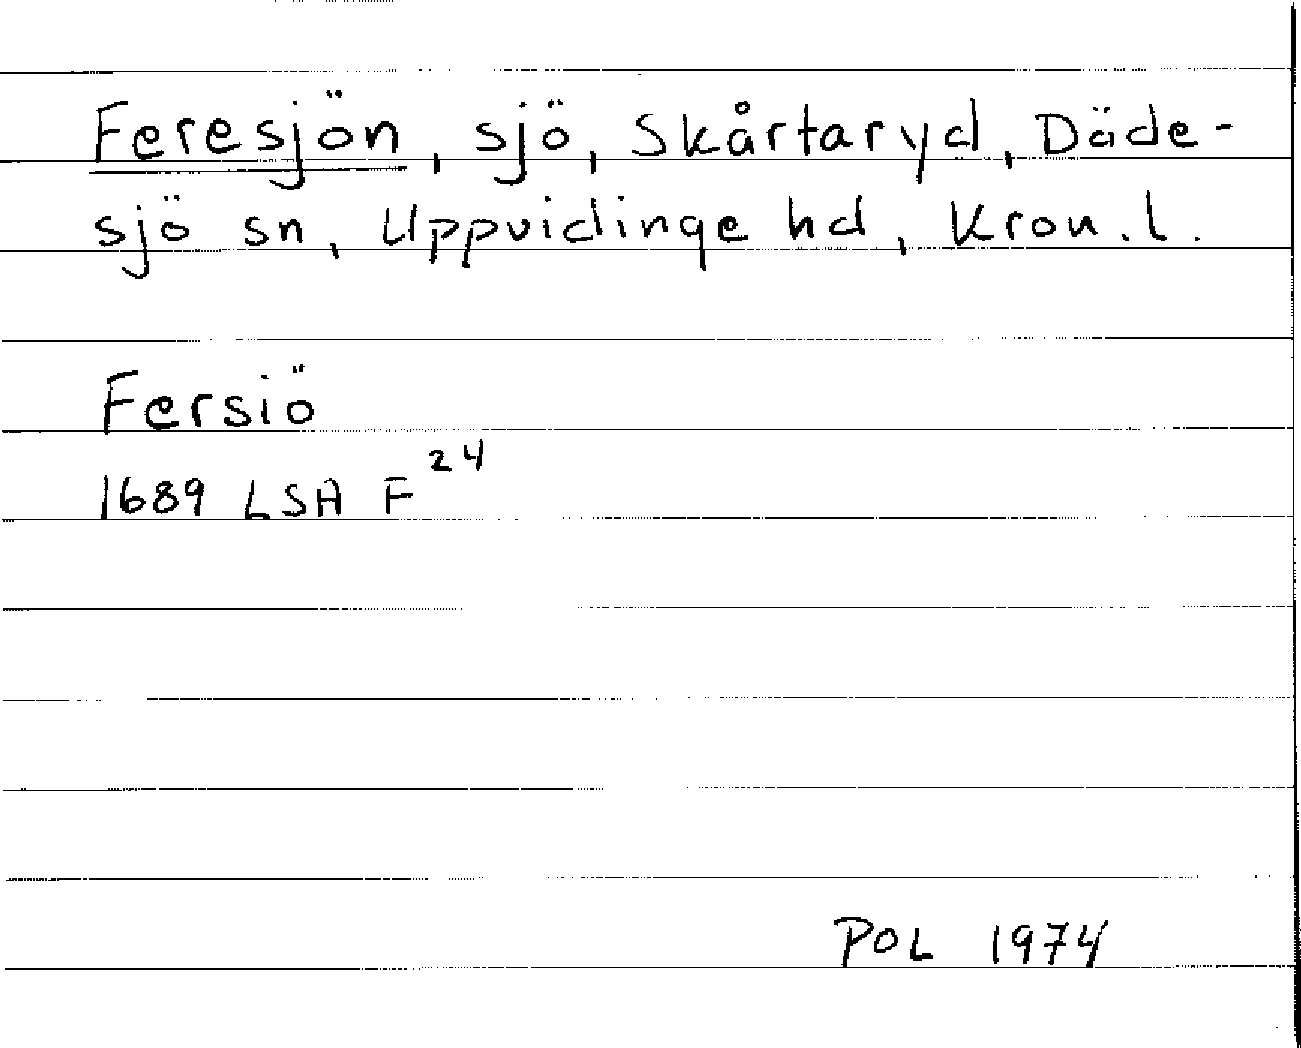 Feresjön, sjö, Skårtaryd, Däde-
sjö sn, Uppvidinge hd, Kron. l.
Fersiö
1689 LSA F 24
POL 1974